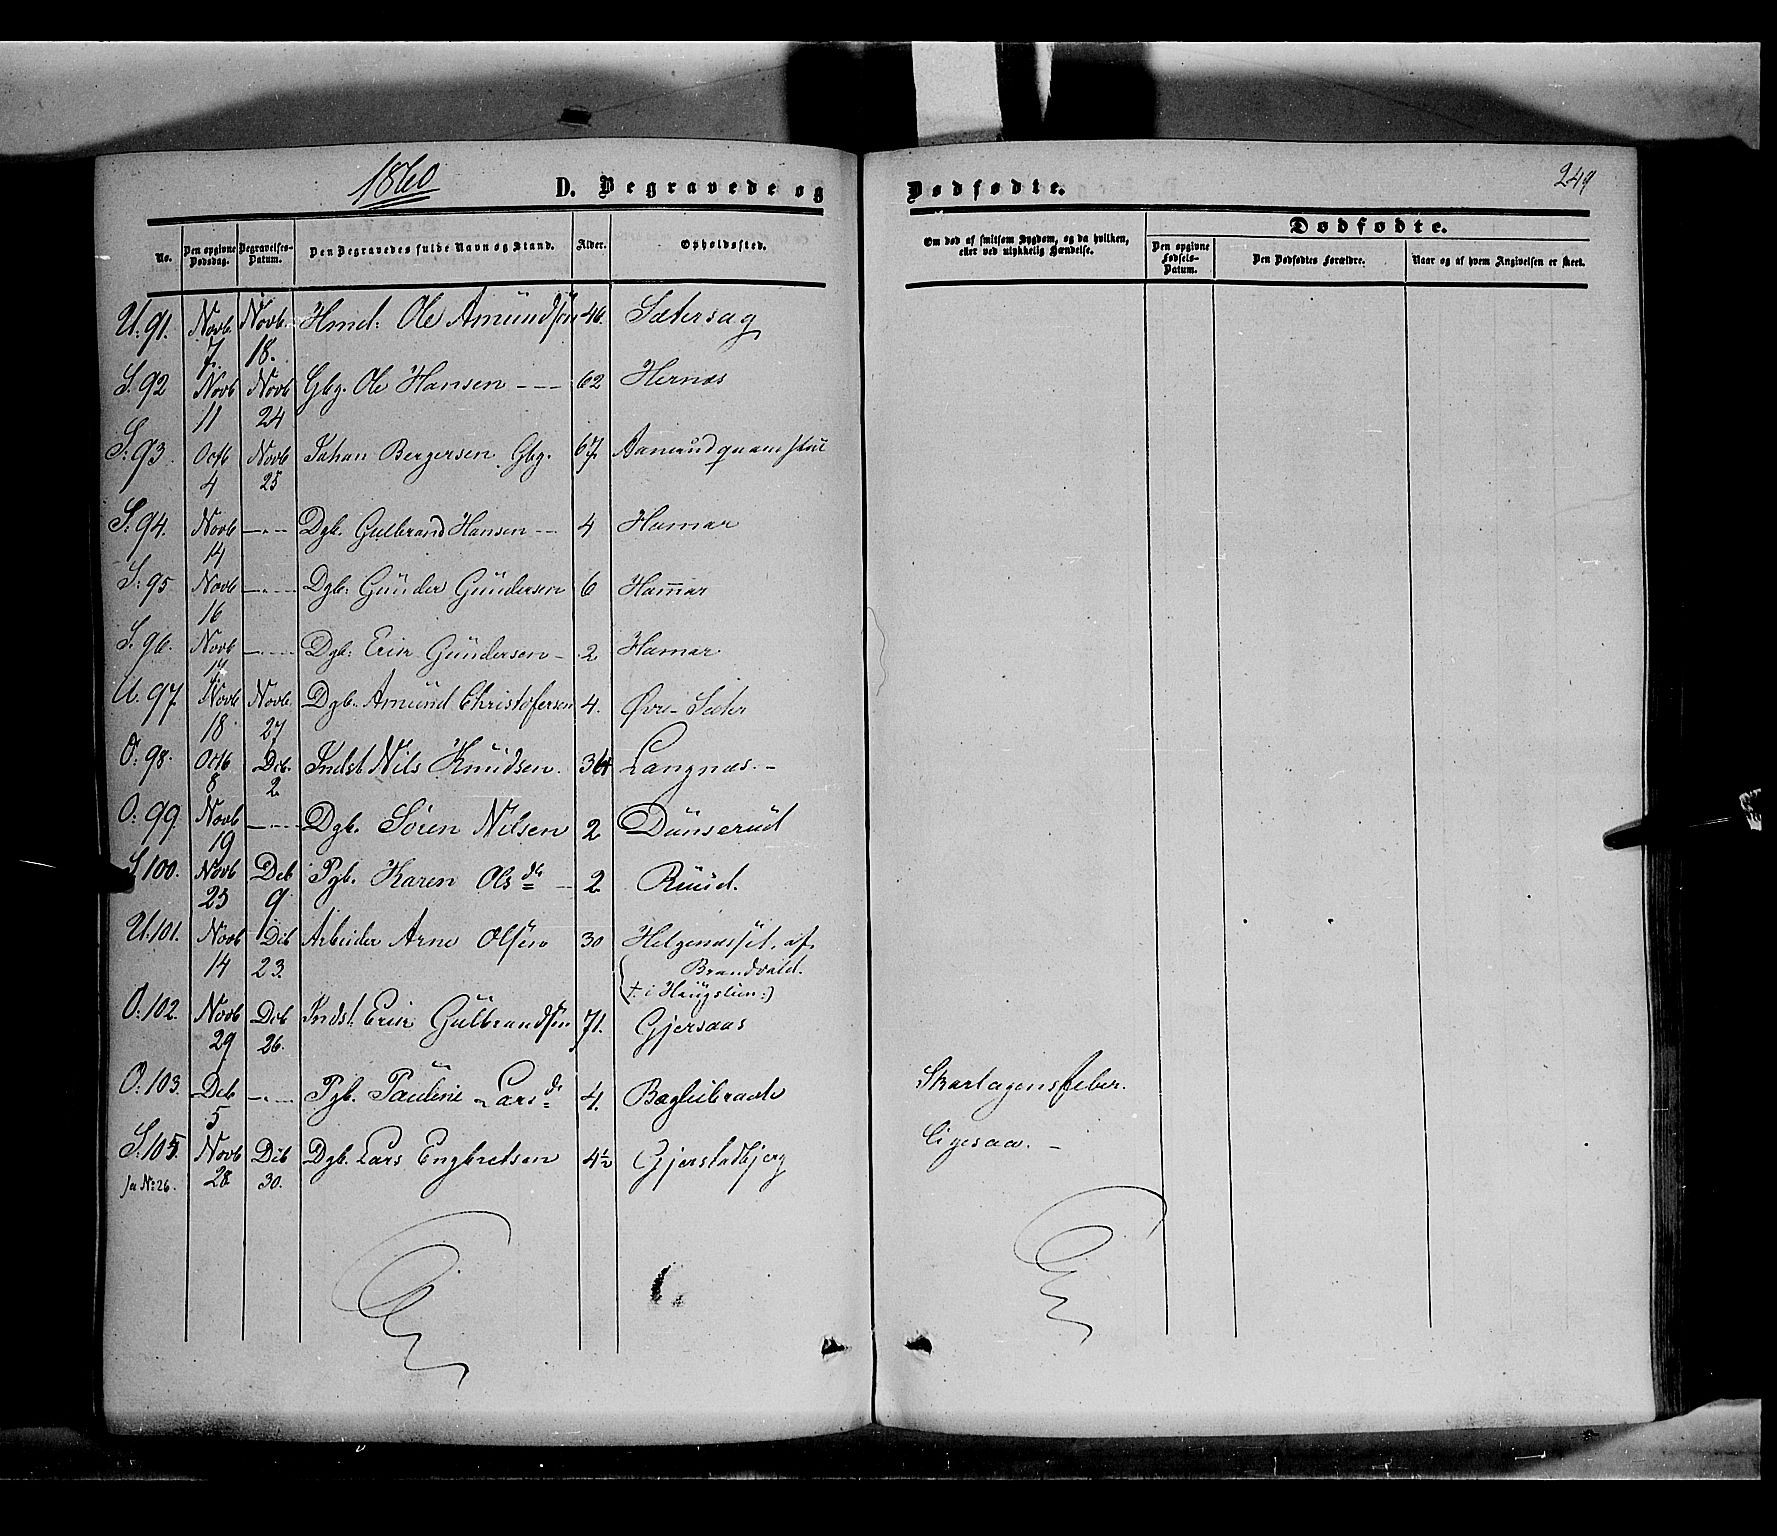 1860
D. Begravede og Dødfødte.
249
No.
Den opgivne Dødsdag.
Begravelses-Datum.
Den Begravedes fulde Navn og Stand.
Alder.
Opholdssted.
Om død af smitsom Sygdom, og da hvilken,
eller ved ulykkelig Hændelse.
Dødfødte.
Den opgivne Fødsels-Datum.
Den Dødfødtes Forældre.
Naar og af hvem Angivelsen er skeet.
U. 91. Novb. 7. Novb. 18. Hmd: Ole Amundsen 46. Sætersag
S. 92 Novb 11 Novb 24 Gbg. Ole Hansen --- 62 Hernæs
S. 93 Octb 4 Novb 25 Johan Bergersen Gbg. 67.
S. 94. Novb 14 -"- Dgb. Gulbrand Hansen -- 4 Hamar
S. 95 Novb 16 -"- Dgb: Gunder Gundersen 6 Ham̄ar
S. 96. Novb 17 -"- Dgb: Eric Gundersen - 2 Hamar
U. 97. Novb 18 Novb. 27 Dgb. Amund Christofersen 4. Øvre-Sæter
O. 98. Octb 8 Deb. 2. Indst. Nils Knudsen. 36 Langnæs. -
O. 99. Novb 19 -"- Dgb. Sören Nilsen 2 Dunserud
S. 100. Novb 23 Deb 9 Pgb. Karen Ols da - 2 Ruud.
U. 101. Novb 14 Deb 23. Arbeider Arne Olsen 30 Helgenæsset, af
Brandvold.
(† i Haugslien:)
O. 102. Novb 29 Deb 26. Indst. Eric Gulbrandsen 71. Gjersaas
O. 103. Deb 5 -"- Pgb. Pauline Lars da 4. Bæglibraate Skarlagensfeber.
S. 105. Novb 28 Deb 30. Dgb. Lars Engbretsen 4½ Gjerstadbjerg Ligesaa. -
fa No: 26.